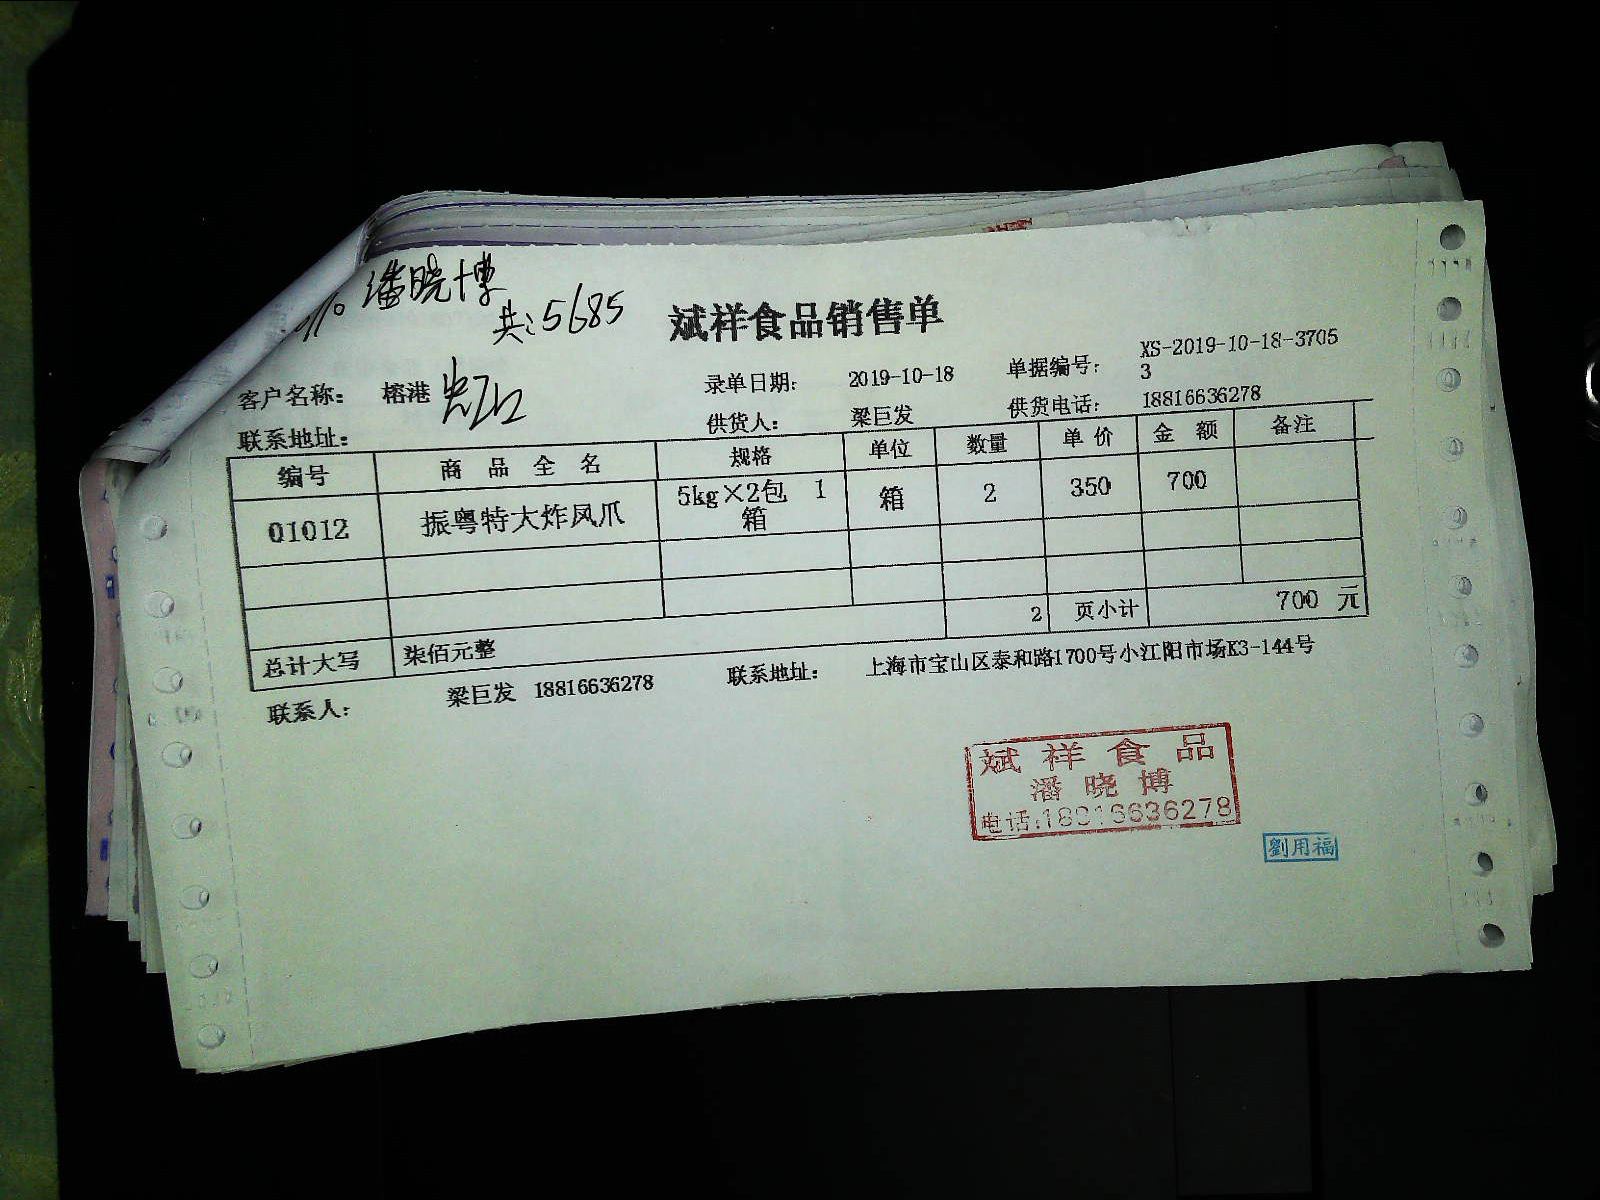 潘晓博
共:5685
斌祥食品销售单
客户名称： 榕港 录单日期： 2019-10-18 单据编号： XS-2019-10-18-3705
3
联系地址： 供货人： 梁巨发 供货电话： 18816636278
编号 商品全名 规格 单位 数量 单价 金额 备注
01012 振粤特大炸凤爪 5kg×2包 1 箱 2 350 700
箱
2 页小计 700 元
总计大写 柒佰元整
联系人： 梁巨发 18816636278 联系地址： 上海市宝山区泰和路1700号小江阳市场K3-144号
斌祥食品
潘晓博
电话:18816636278
劉用福